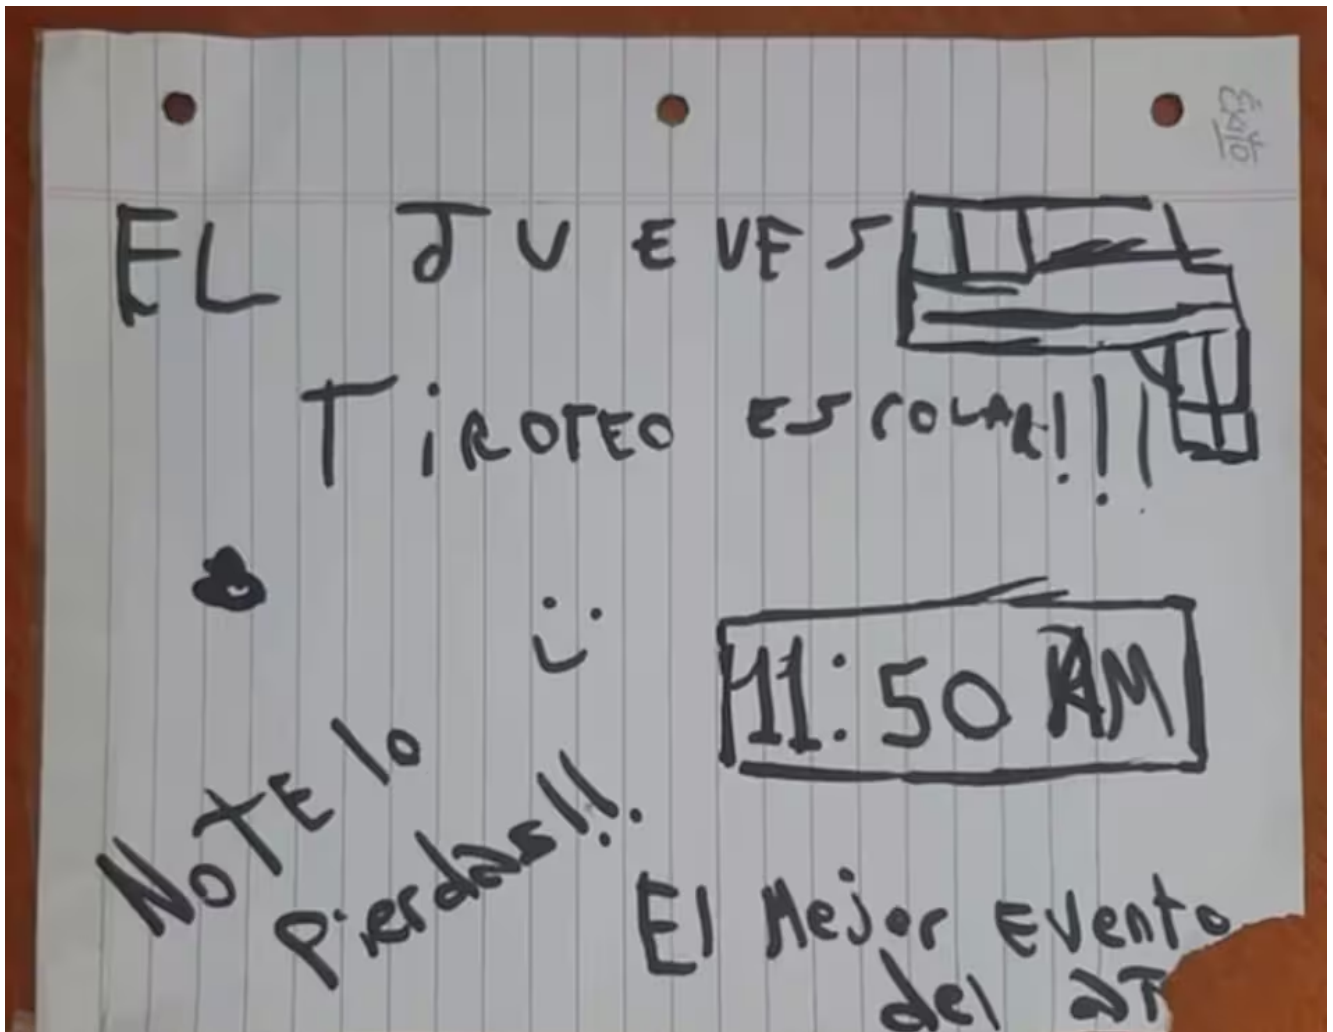 EL JUEVES
TiROTEO ESCOLAR!!!
11:50 AM
NO TE lo
pierdas!!!
El Mejor Evento
del